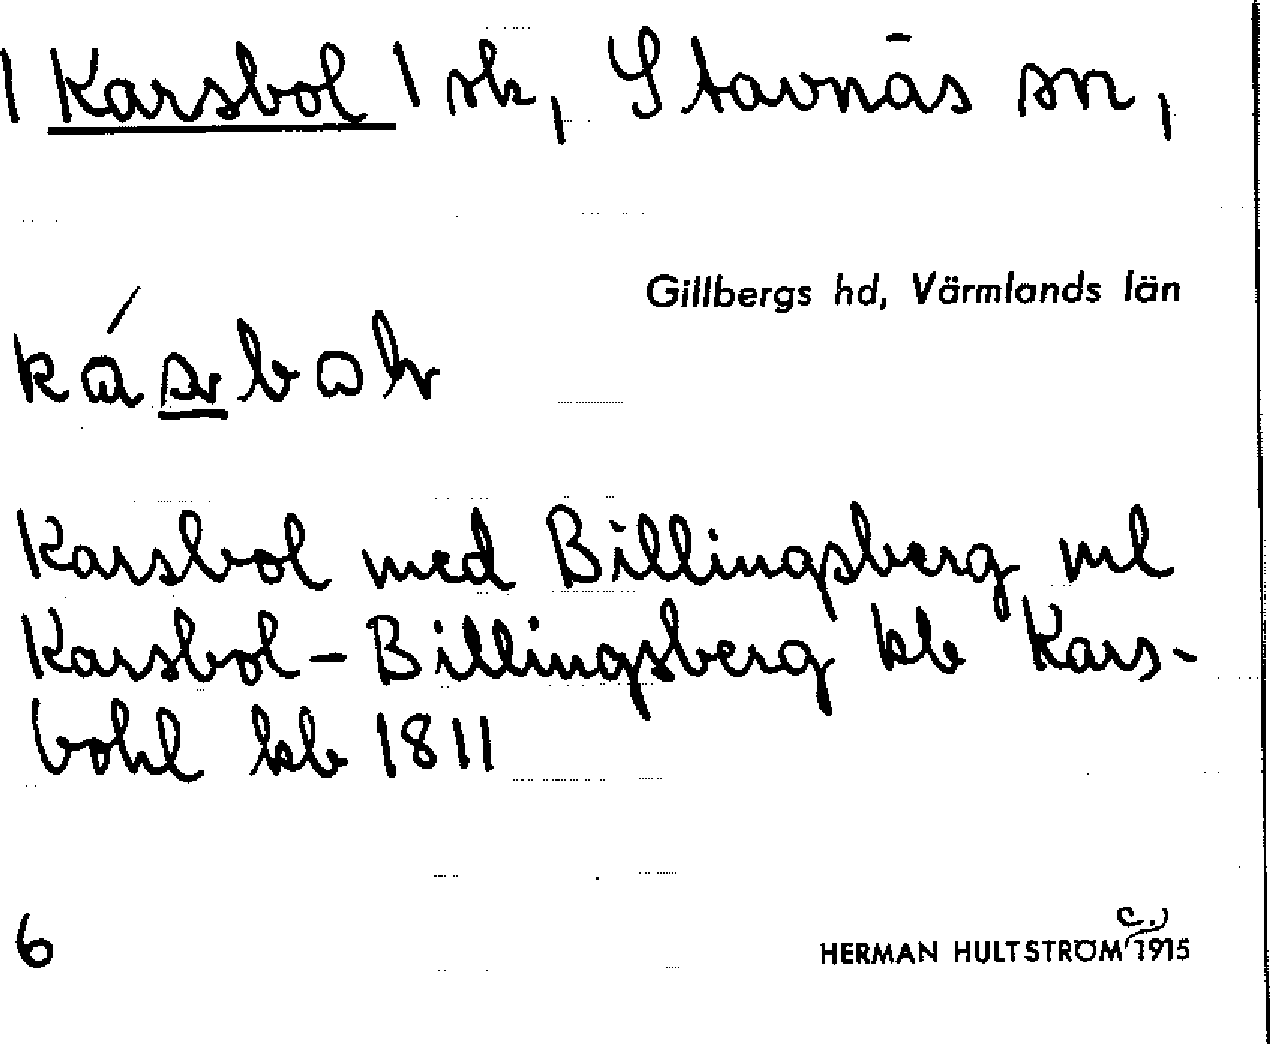 | Karsbol | sk, Stavnäs sn,
Gillbergs hd, Värmlands län
Karsbol med Billingsberg ml
Karsbol-Billingsberg kb Kars-
bohl kb 1811
6
HERMAN HULTSTRÖM (c.) 1915